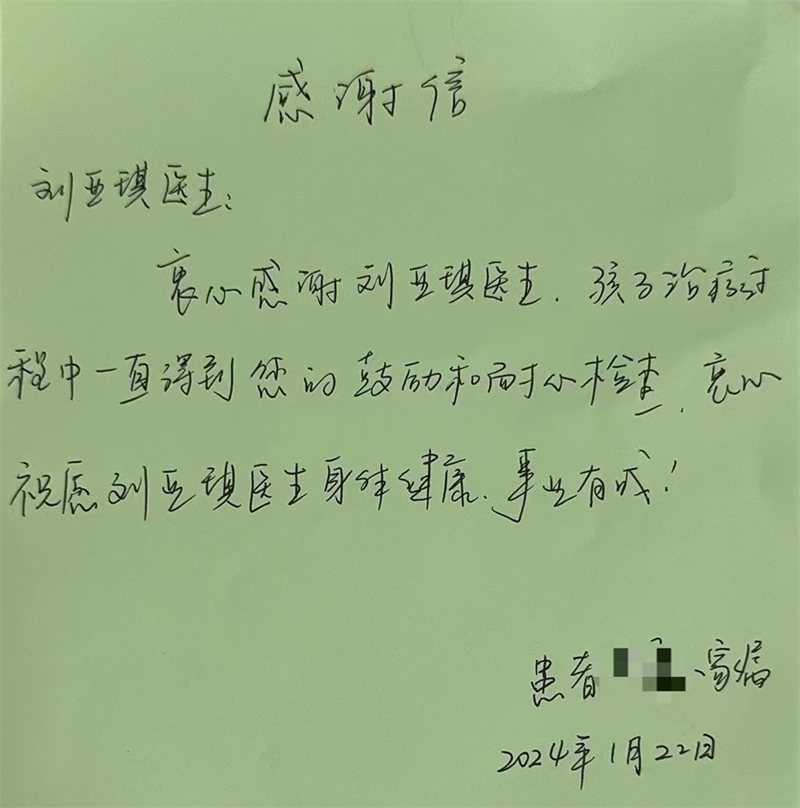 感谢信
刘亚琪医生:
衷心感谢刘亚琪医生.孩子治病过
程中一直得到您的鼓励和耐心检查,衷心
祝愿刘亚琪医生身体健康、事业有成!
患者 家属
2024年1月22日